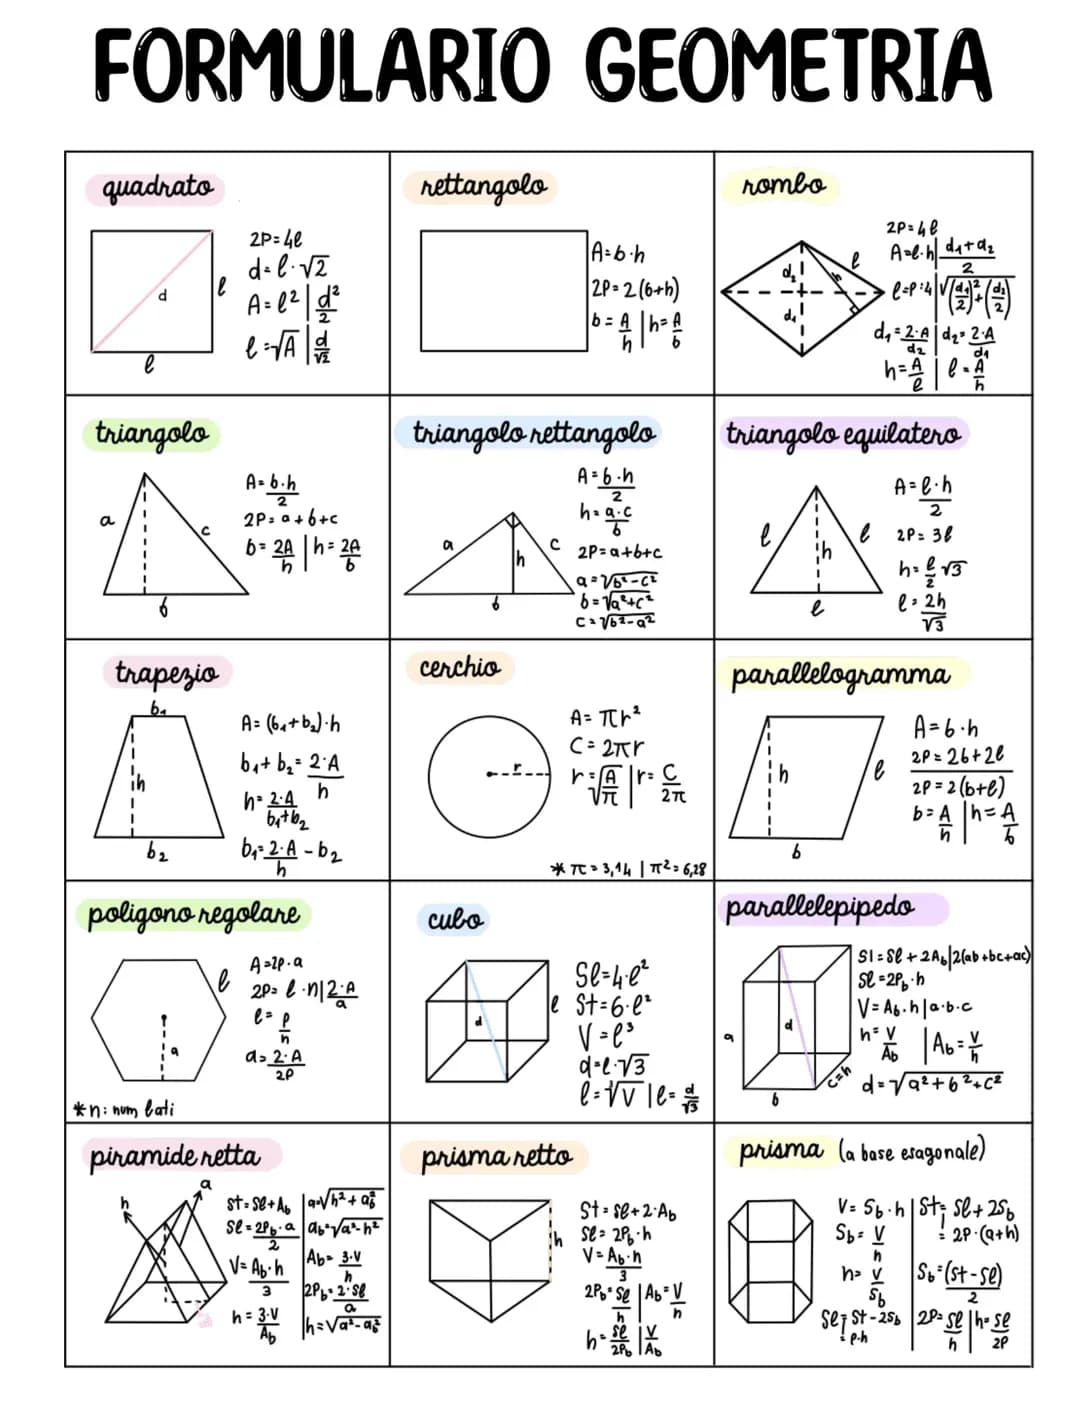 FORMULARIO GEOMETRIA
quadrato
d
ℓ
ℓ
2P=4ℓ
d=ℓ·√2
A=ℓ² | d²/2
ℓ=√A | d/√2
rettangolo
A=b·h
2P=2(b+h)
b=A/h | h=A/b
rombo
d₂
d₁
h
ℓ
2P=4ℓ
A=ℓ·h | d₁+d₂/2
ℓ=P:4 | √(d₁/2)²+(d₂/2)
d₁=2·A/d₂ | d₂=2·A/d₁
h=A/ℓ | ℓ=A/h
triangolo
a
c
b
A=b·h/2
2P=a+b+c
b=2A/h | h=2A/b
triangolo rettangolo
a
h
c
b
A=b·h/2
h=a·c/b
2P=a+b+c
a=√b²-c²
b=√a²+c²
c=√b²-a²
triangolo equilatero
ℓ
h
ℓ
ℓ
A=ℓ·h/2
2P=3ℓ
h=ℓ/2 √3
ℓ=2h/√3
trapezio
b₁
h
b₂
A=(b₁+b₂)·h
b₁+b₂=2·A/h
h=2·A/b₁+b₂
b₁=2·A/h-b₂
cerchio
r
A=πr²
C=2πr
r=√A/π | r=C/2π
*π=3,14 | π²=6,28
parallelogramma
h
ℓ
b
A=b·h
2P=2b+2ℓ
2P=2(b+ℓ)
b=A/h | h=A/b
poligono regolare
ℓ
a
A=2p·a
2P=ℓ·n | 2·A/a
ℓ=P/n
a=2·A/2P
*n: num lati
cubo
d
ℓ
Sℓ=4·ℓ²
St=6·ℓ²
V=ℓ³
d=ℓ·√3
ℓ=∛V | ℓ=d/√3
parallelepipedo
a
d
b
c=h
Sl=Sℓ+2Ab | 2(ab+bc+ac)
Sℓ=2Pb·h
V=Ab·h | a·b·c
h=V/Ab | Ab=V/h
d=√a²+b²+c²
piramide retta
h
a
St=Sℓ+Ab | a=√h²+ab²
Sℓ=2Pb·a/2 | ab=√a²-h²
V=Ab·h/3 | Ab=3·V/h
2Pb=2·Sℓ/a
h=3·V/Ab | h=√a²-ab²
prisma retto
h
St=Sℓ+2·Ab
Sℓ=2Pb·h
V=Ab·h/3
2Pb=Sℓ/h | Ab=V/h
h=Sℓ/2Pb | V/Ab
prisma (a base esagonale)
V=Sb·h | St=Sℓ+2Sb
Sb=V/h | =2P·(a+h)
h=V/Sb | Sb=(St-Sℓ)/2
Sℓ=St-2Sb | 2P=Sℓ/h | h=Sℓ/2P
=P·h